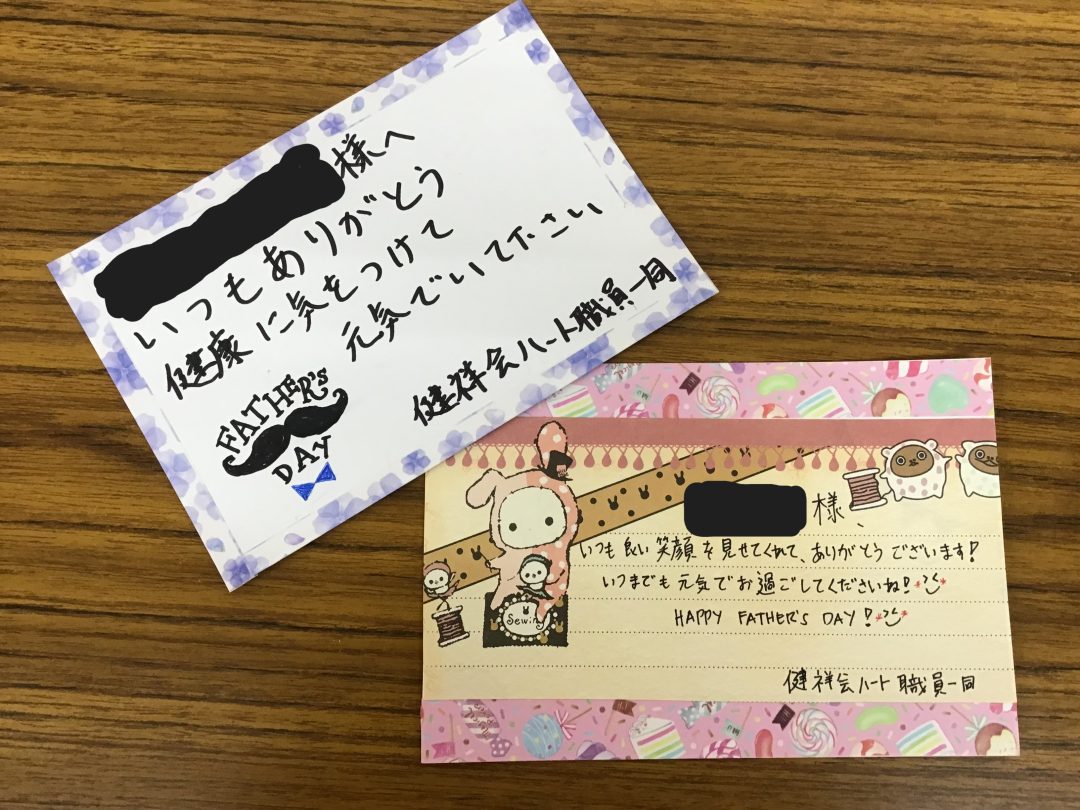 様へ
いつもありがとう
健康に気をつけて
元気でいて下さい
健祥会ハート職員一同
FATHER'S
DAY
様、
いつも良い笑顔を見せてくれて、ありがとうございます!
いつまでも元気でお過ごしてくださいね!
HAPPY FATHER'S DAY!
健祥会ハート職員一同
Sewing